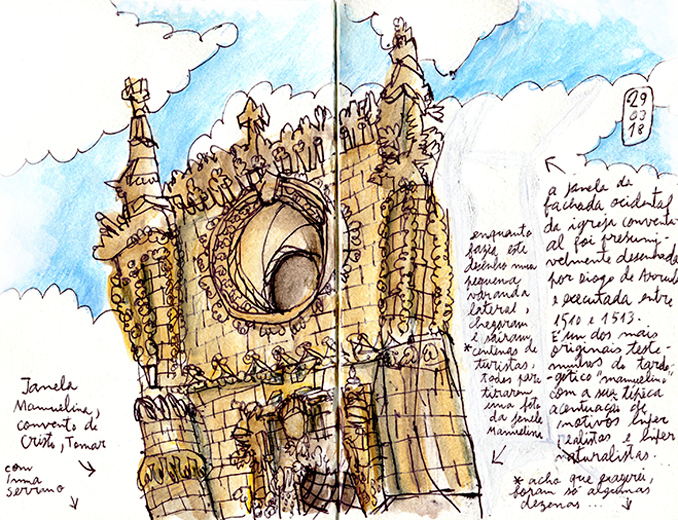 29
03
18
a janela da
fachada ocidental
da igreja conventu
al foi presumi-
velmente desenhada
por Diogo de Arruda
e executada entre
1510 e 1513.
É um dos mais
originais teste-
munhos do tardo-
gótico "manuelino"
com a sua típica
acentuação de
motivos hiper
realistas e hiper
naturalistas.
enquanto
fazia este
desenho numa
pequena
varanda
lateral,
chegaram
e saíram
*centenas de
turistas,
todos para
tirarem
uma foto
da janela
Manuelina
* acho que exagerei,
foram só algumas
dezenas...
Janela
Manuelina,
convento de
Cristo, Tomar
com
Inma
Serrano